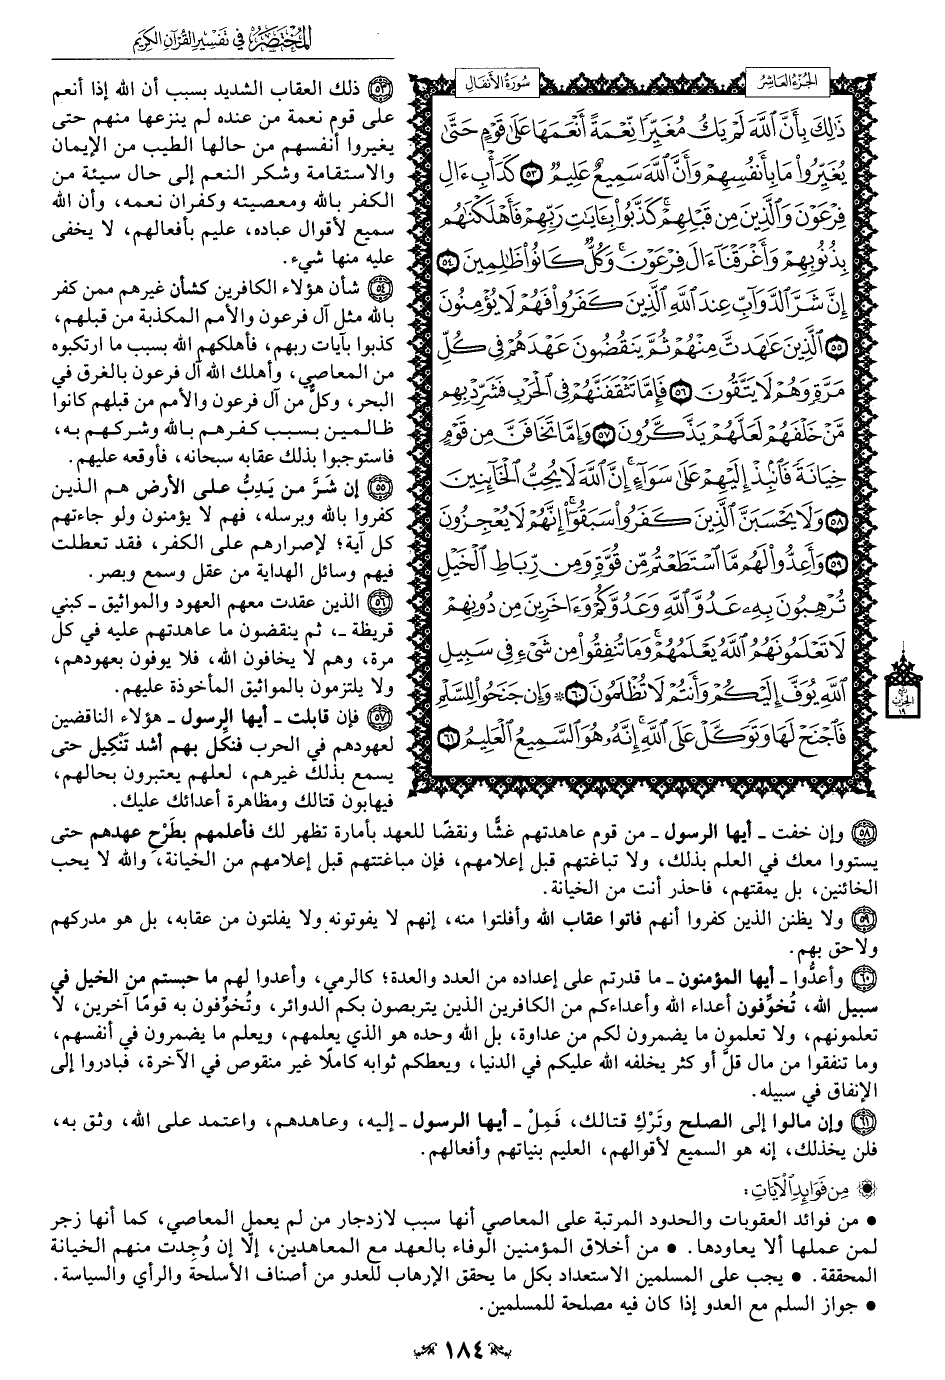 المختصر في تفسير القرآن الكريم
الجزء العاشر
سورة الأنفال
ذَٰلِكَ بِأَنَّ ٱللَّهَ لَمْ يَكُ مُغَيِّرًا نِّعْمَةً أَنْعَمَهَا عَلَىٰ قَوْمٍ حَتَّىٰ
يُغَيِّرُوا۟ مَا بِأَنفُسِهِمْ وَأَنَّ ٱللَّهَ سَمِيعٌ عَلِيمٌ ٥٣ كَدَأْبِ ءَالِ
فِرْعَوْنَ وَٱلَّذِينَ مِن قَبْلِهِمْ كَذَّبُوا۟ بِـَٔايَٰتِ رَبِّهِمْ فَأَهْلَكْنَٰهُم
بِذُنُوبِهِمْ وَأَغْرَقْنَآ ءَالَ فِرْعَوْنَ وَكُلٌّ كَانُوا۟ ظَٰلِمِينَ ٥٤
إِنَّ شَرَّ ٱلدَّوَآبِّ عِندَ ٱللَّهِ ٱلَّذِينَ كَفَرُوا۟ فَهُمْ لَا يُؤْمِنُونَ
٥٥ ٱلَّذِينَ عَٰهَدتَّ مِنْهُمْ ثُمَّ يَنقُضُونَ عَهْدَهُمْ فِى كُلِّ
مَرَّةٍ وَهُمْ لَا يَتَّقُونَ ٥٦ فَإِمَّا تَثْقَفَنَّهُمْ فِى ٱلْحَرْبِ فَشَرِّدْ بِهِم
مَّنْ خَلْفَهُمْ لَعَلَّهُمْ يَذَّكَّرُونَ ٥٧ وَإِمَّا تَخَافَنَّ مِن قَوْمٍ
خِيَانَةً فَٱنۢبِذْ إِلَيْهِمْ عَلَىٰ سَوَآءٍ إِنَّ ٱللَّهَ لَا يُحِبُّ ٱلْخَآئِنِينَ
٥٨ وَلَا يَحْسَبَنَّ ٱلَّذِينَ كَفَرُوا۟ سَبَقُوٓا۟ إِنَّهُمْ لَا يُعْجِزُونَ
٥٩ وَأَعِدُّوا۟ لَهُم مَّا ٱسْتَطَعْتُم مِّن قُوَّةٍ وَمِن رِّبَاطِ ٱلْخَيْلِ
تُرْهِبُونَ بِهِۦ عَدُوَّ ٱللَّهِ وَعَدُوَّكُمْ وَءَاخَرِينَ مِن دُونِهِمْ
لَا تَعْلَمُونَهُمُ ٱللَّهُ يَعْلَمُهُمْ وَمَا تُنفِقُوا۟ مِن شَىْءٍ فِى سَبِيلِ
ٱللَّهِ يُوَفَّ إِلَيْكُمْ وَأَنتُمْ لَا تُظْلَمُونَ ٦٠ ۞ وَإِن جَنَحُوا۟ لِلسَّلْمِ
فَٱجْنَحْ لَهَا وَتَوَكَّلْ عَلَى ٱللَّهِ إِنَّهُۥ هُوَ ٱلسَّمِيعُ ٱلْعَلِيمُ ٦١
ربع
الحزب
١٩
٥٣ ذلك العقاب الشديد بسبب أن الله إذا أنعم
على قوم نعمة من عنده لم ينزعها منهم حتى
يغيروا أنفسهم من حالها الطيب من الإيمان
والاستقامة وشكر النعم إلى حال سيئة من
الكفر بالله ومعصيته وكفران نعمه، وأن الله
سميع لأقوال عباده، عليم بأفعالهم، لا يخفى
عليه منها شيء.
٥٤ شأن هؤلاء الكافرين كشأن غيرهم ممن كفر
بالله مثل آل فرعون والأمم المكذبة من قبلهم،
كذبوا بآيات ربهم، فأهلكهم الله بسبب ما ارتكبوه
من المعاصي، وأهلك الله آل فرعون بالغرق في
البحر، وكلٌّ من آل فرعون والأمم من قبلهم كانوا
ظالمين بسبب كفرهم بالله وشركهم به،
فاستوجبوا بذلك عقابه سبحانه، فأوقعه عليهم.
٥٥ إن شَرَّ من يَدِبُّ على الأرض هم الذين
كفروا بالله وبرسله، فهم لا يؤمنون ولو جاءتهم
كل آية؛ لإصرارهم على الكفر، فقد تعطلت
فيهم وسائل الهداية من عقل وسمع وبصر.
٥٦ الذين عقدت معهم العهود والمواثيق ـ كبني
قريظة ـ، ثم ينقضون ما عاهدتهم عليه في كل
مرة، وهم لا يخافون الله، فلا يوفون بعهودهم،
ولا يلتزمون بالمواثيق المأخوذة عليهم.
٥٧ فإن قابلت ـ أيها الرسول ـ هؤلاء الناقضين
لعهودهم في الحرب فنكِّل بهم أشد تَنْكِيل حتى
يسمع بذلك غيرهم، لعلهم يعتبرون بحالهم،
فيهابون قتالك ومظاهرة أعدائك عليك.
٥٨ وإن خفت ـ أيها الرسول ـ من قوم عاهدتهم غشًّا ونقضًا للعهد بأمارة تظهر لك فأعلمهم بطَرْحِ عهدهم حتى
يستووا معك في العلم بذلك، ولا تباغتهم قبل إعلامهم، فإن مباغتتهم قبل إعلامهم من الخيانة، والله لا يحب
الخائنين، بل يمقتهم، فاحذر أنت من الخيانة.
٥٩ ولا يظنن الذين كفروا أنهم فاتوا عقاب الله وأفلتوا منه، إنهم لا يفوتونه ولا يفلتون من عقابه، بل هو مدركهم
ولاحق بهم.
٦٠ وأعدُّوا ـ أيها المؤمنون ـ ما قدرتم على إعداده من العدد والعدة؛ كالرمي، وأعدوا لهم ما حبستم من الخيل في
سبيل الله، تُخوِّفون أعداء الله وأعداءكم من الكافرين الذين يتربصون بكم الدوائر، وتُخوِّفون به قومًا آخرين، لا
تعلمونهم، ولا تعلمون ما يضمرون لكم من عداوة، بل الله وحده هو الذي يعلمهم، ويعلم ما يضمرون في أنفسهم،
وما تنفقوا من مال قلَّ أو كثر يخلفه الله عليكم في الدنيا، ويعطكم ثوابه كاملًا غير منقوص في الآخرة، فبادروا إلى
الإنفاق في سبيله.
٦١ وإن مالوا إلى الصلح وتَرْكِ قتالك، فَمِلْ ـ أيها الرسول ـ إليه، وعاهدهم، واعتمد على الله، وثق به،
فلن يخذلك، إنه هو السميع لأقوالهم، العليم بنياتهم وأفعالهم.
من فوائد الآيات:
• من فوائد العقوبات والحدود المرتبة على المعاصي أنها سبب لازدجار من لم يعمل المعاصي، كما أنها زجر
لمن عملها ألا يعاودها. • من أخلاق المؤمنين الوفاء بالعهد مع المعاهدين، إلّا إن وُجِدت منهم الخيانة
المحققة. • يجب على المسلمين الاستعداد بكل ما يحقق الإرهاب للعدو من أصناف الأسلحة والرأي والسياسة.
• جواز السلم مع العدو إذا كان فيه مصلحة للمسلمين.
١٨٤